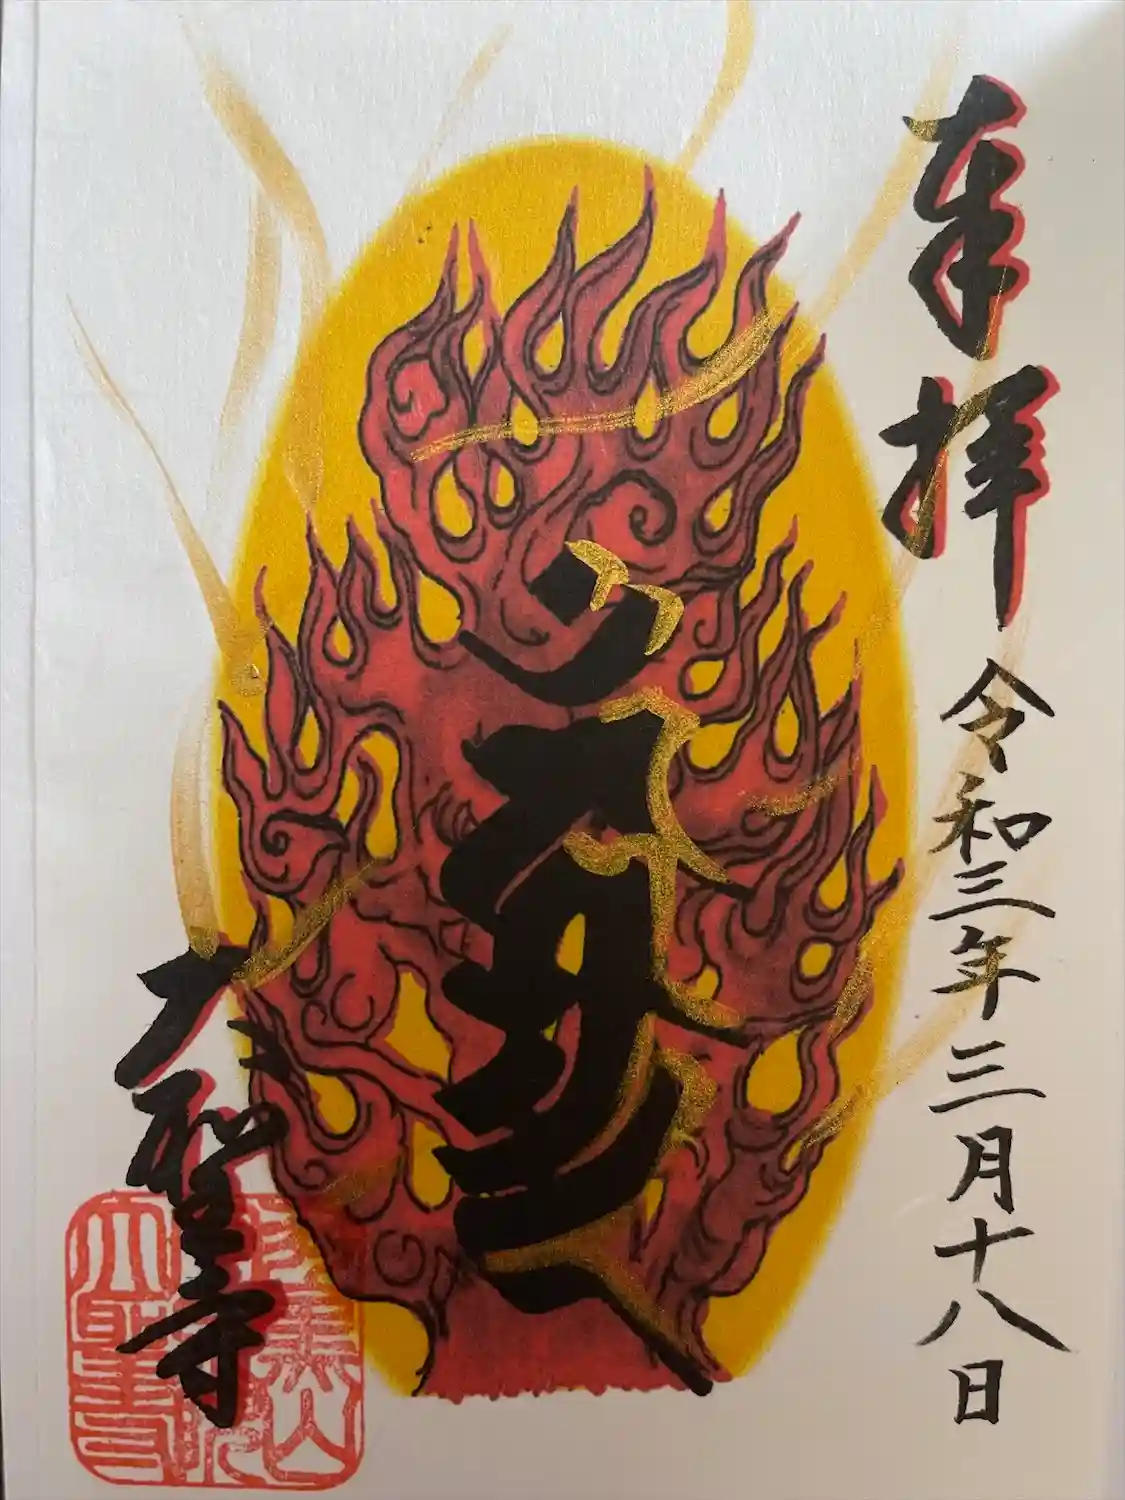 奉拝
令和三年三月十八日
大聖寺